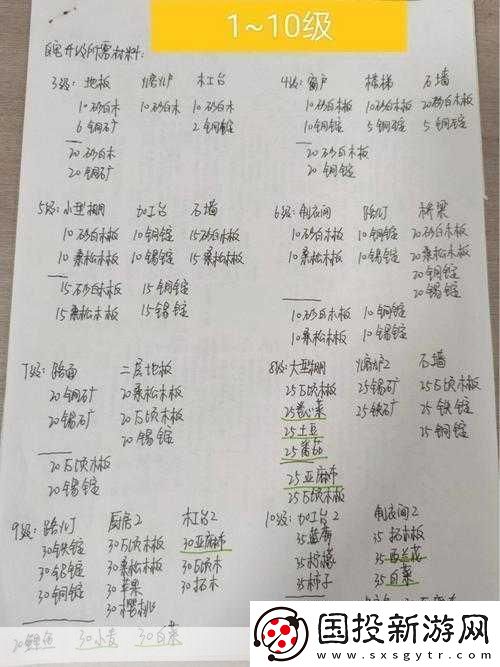 1~10级
自宅升级所需材料:
3级: 地板 熔炉 木工台
10砂白木 10砂白木 10砂白木
6铜矿 2铜锭
20砂白木
20铜矿
4级: 窗户 楼梯 石墙
10砂白木板 10砂白木板 20砂白木板
10铜锭 5铜锭 5铜锭
20砂白木板
20铜锭
5级: 小型棚 加工台 石墙
10砂白木板 10铜锭 15砂白木板
10柔松木板 10锡锭 15柔松木板
15砂白木板 15铜锭
15柔松木板 15锡锭
6级: 制衣间 路灯 桥梁
10砂白木板 10铜锭 20砂白木板
10柔松木板 10锡锭 20柔松木板
20铜锭
20锡锭
10砂白木板 10铜锭
10柔松木板 10锡锭
7级: 路面 二层地板
20铜矿 20柔松木板
20锡矿 20瓦栎木板
20锡锭
20瓦栎木板
20锡锭
8级: 大型棚 熔炉2 石墙
25瓦栎木板 25锡矿 25瓦栎木板
25卷心菜 25铁矿 25铁锭
25土豆 25铜锭
25番茄
25亚麻布
25瓦栎木板
9级: 路灯 厨房2 木工台2
30铁锭 30瓦栎木板 30亚麻布
30铝锭 30柔松木板 30瓦栎木
30铜锭 30苹果 30拓木
30樱桃
20鲤鱼 30小麦 30白菜
10级: 加工台2 制衣间2
35蓝莓 35拓木板
35柠檬 35西兰花
35柿子 35白菜
国投新游网
sxsxsgytr.com